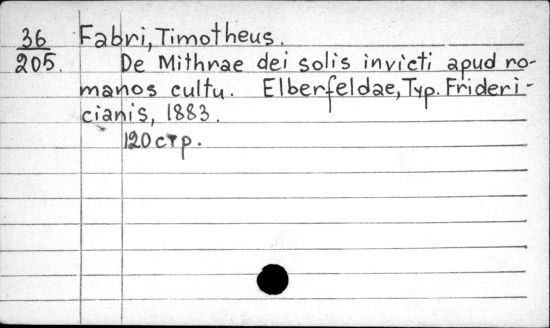 36 Fabri, Timotheus.
205. De Mithrae dei solis invicti apud ro-
manos cultu. Elberfeldae, Typ. Frideri-
cianis, 1883.
120 стр.